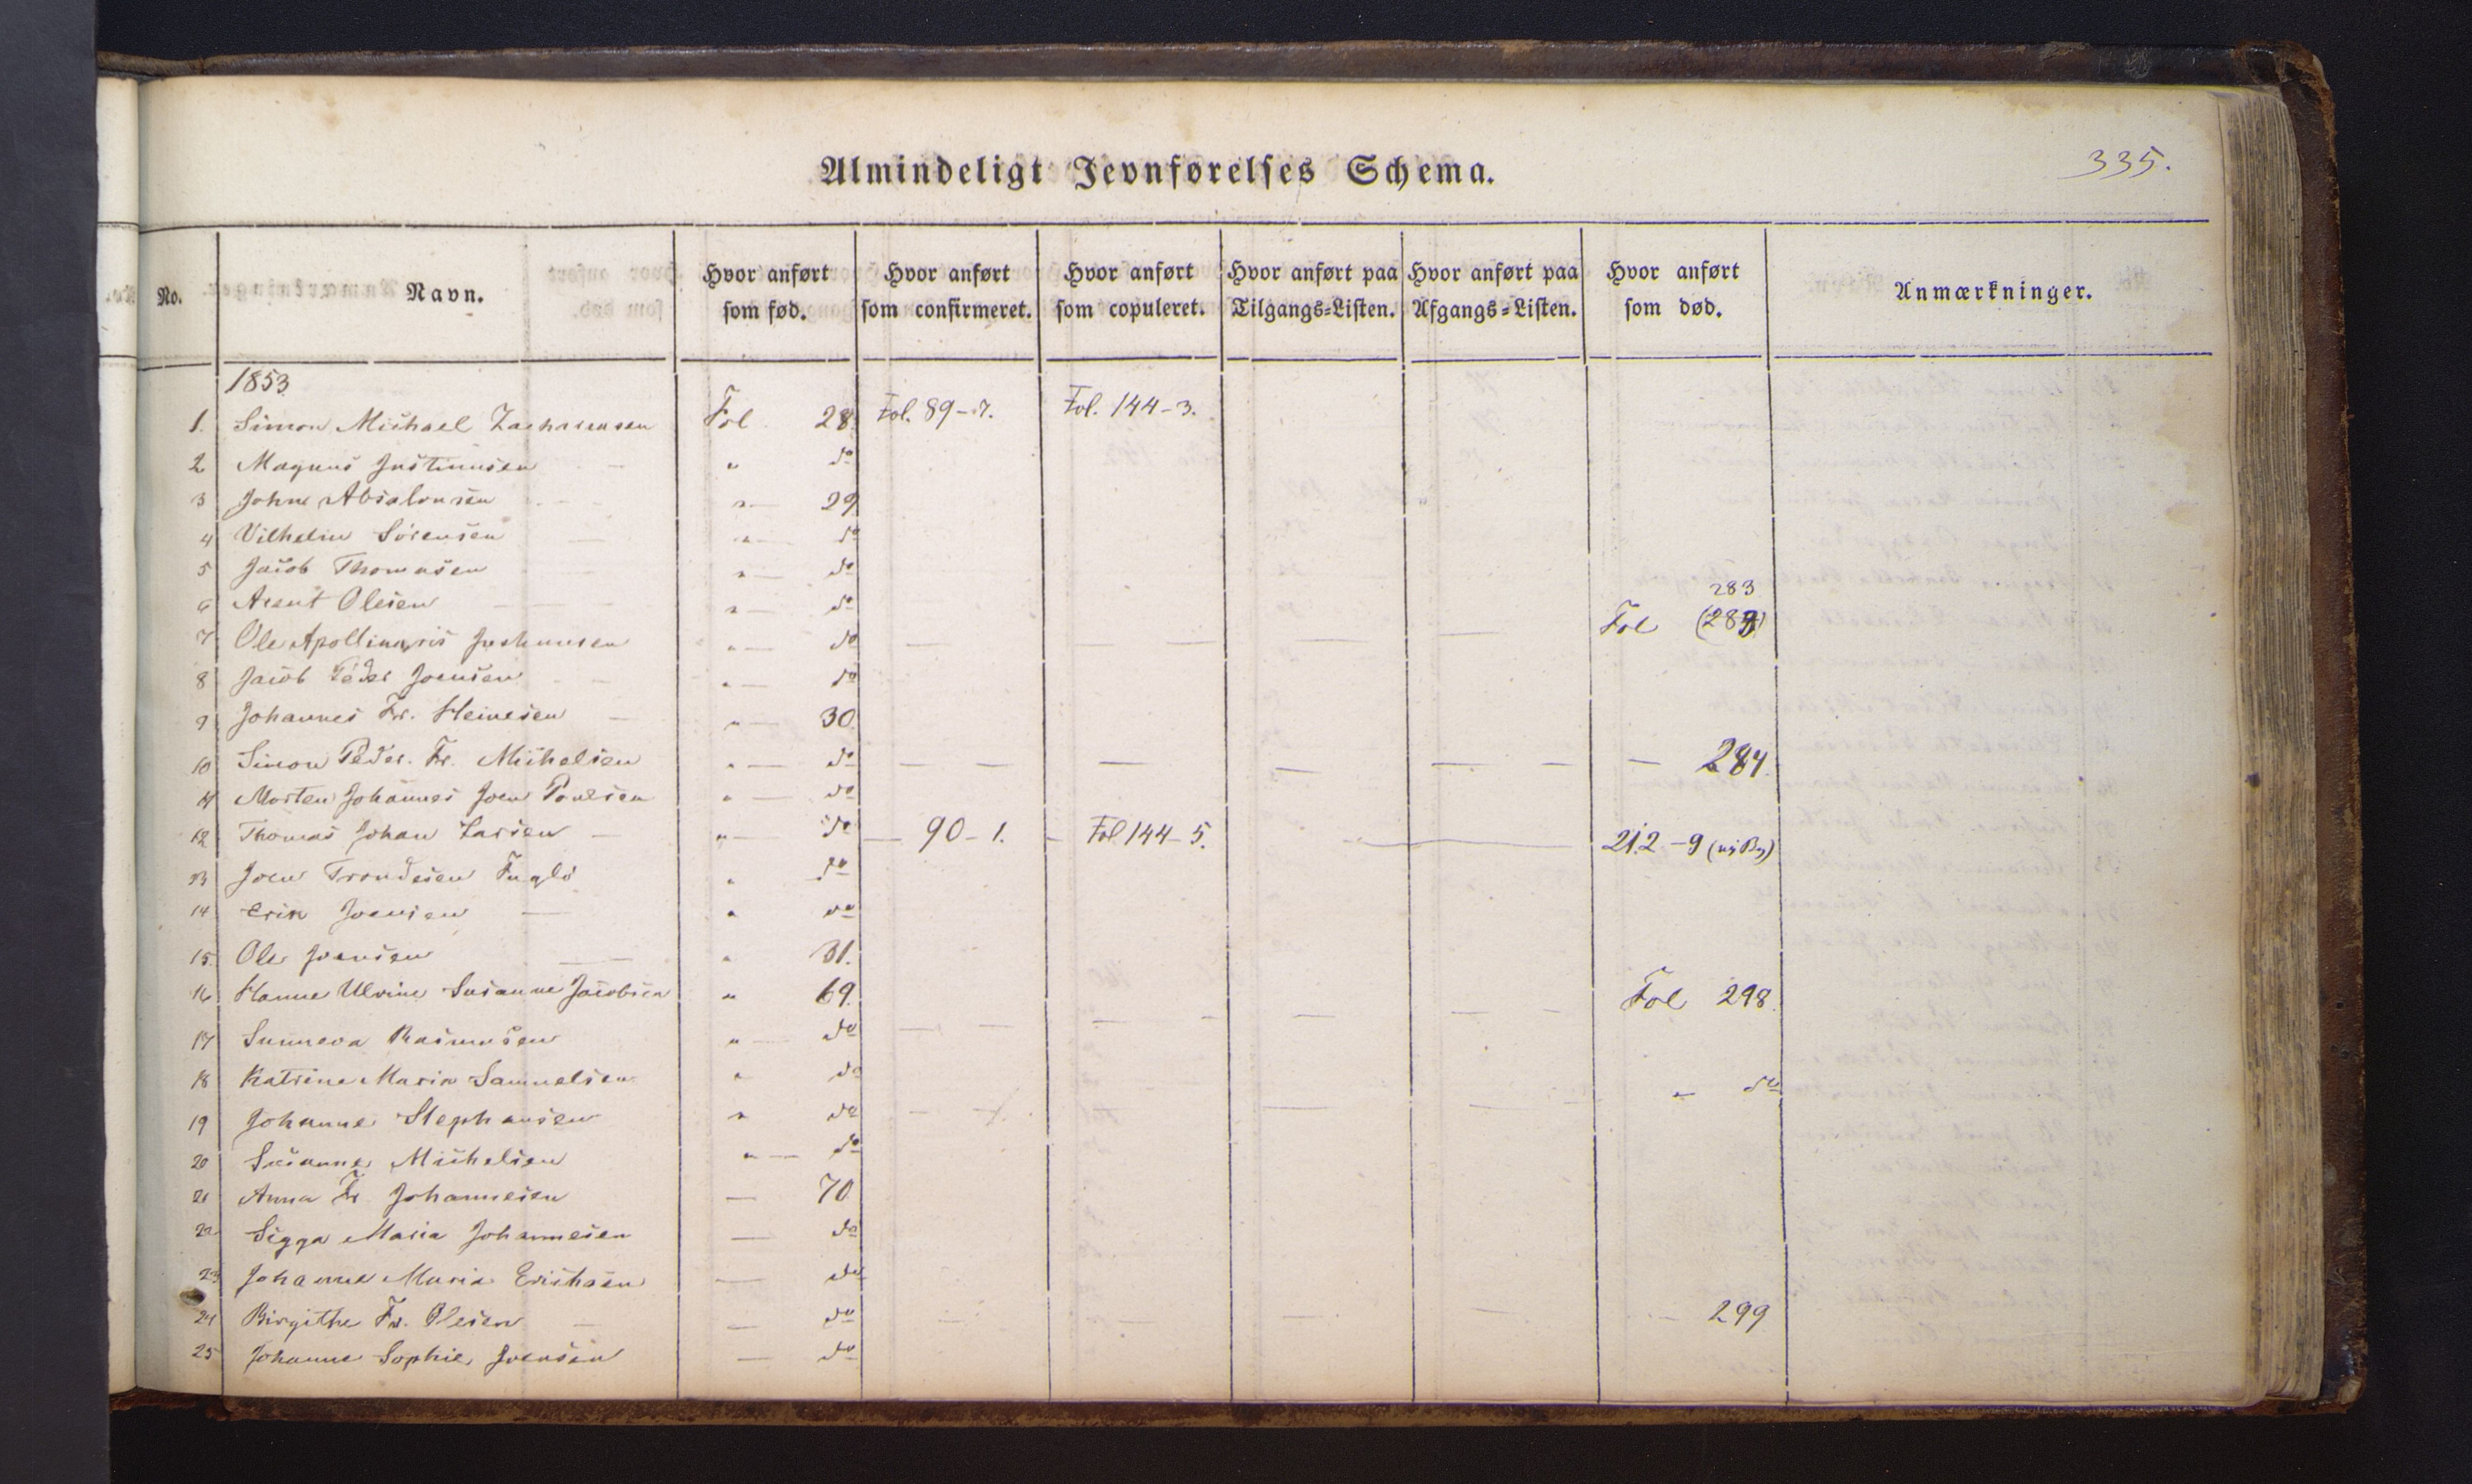 335.
Almindeligt Jevnførelses Schema.
No. Navn. Hvor anført som fød. Hvor anført som confirmeret. Hvor anført som copuleret. Hvor anført paa Tilgangs-Listen. Hvor anført paa Afgangs-Listen. Hvor anført som død. Anmærkninger.
1853
1. Simon Michael Zachariasen Fol 28 Fol. 89-7. Fol. 144-3.
2 Magnus Justinusen " do
3 Johne Absalonsen " 29
4 Vilhelm Sörensen " do
5 Jacob Thomasen " do
283
6 Arent Olesen " do
7 Ole Apollinaris Joshuusen " do Fol (284)
8 Jacob Peder Joensen " do
9 Johannes Fr. Heinesen " 30
10 Simon Peder. Fr. Michelsen " do 284
11 Morten Johannes Joen Poulsen " do
12 Thomas Johan Larsen " do 90-1. Fol 144-5. 212-9 (ny Bog)
13 Joen Trondesen Fuglö " do
14 Erik Joensen " do
15 Ole Joensen " 31.
16 Hanne Ulvine Susanne Jacobsen " 69. Fol 298
17 Sunneva Rasmusen " do
18 Katrine Maria Samuelsen " do " do
19 Johanne Stephansen " do
20 Susanne Michelsen " do
21 Anna Fr Johannesen 70
22 Sigga Maria Johannesen do
23 Johanne Maria Erichsen do
24 Birgithe Fr. Olesen do 299
25 Johanne Sophie Joensen do